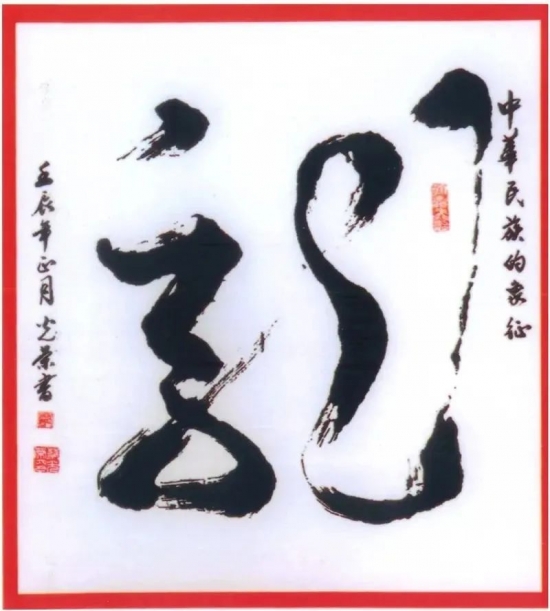 中華民族的象征
龍
壬辰年正月 光荣書